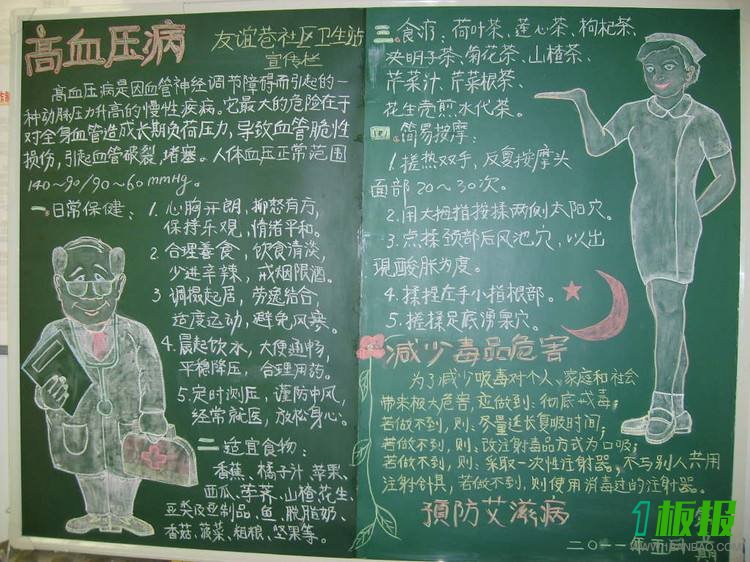 高血压病
友谊巷社区卫生站
宣传栏
高血压病是因血管神经调节障碍而引起的一
种动脉压力升高的慢性疾病。它最大的危险在于
对全身血管造成长期负荷压力，导致血管脆性
损伤，引起血管破裂、堵塞。人体血压正常范围
140~90/90~60mmHg。
一.日常保健：1.心胸开朗，抑怒有方，
保持乐观，情绪平和。
2.合理善食，饮食清淡，
少进辛辣，戒烟限酒。
3.调摄起居，劳逸结合，
适度运动，避免风寒。
4.晨起饮水，大便通畅，
平稳降压，合理用药。
5.定时测压，谨防中风，
经常就医，放松身心。
二.适宜食物：
香蕉、橘子汁、苹果、
西瓜、荸荠、山楂、花生、
豆类及豆制品、鱼、脱脂奶、
香菇、菠菜、粗粮、坚果等。
三.食疗：荷叶茶、莲心茶、枸杞茶、
决明子茶、菊花茶、山楂茶、
芹菜汁、芹菜根茶、
花生壳煎水代茶。
四.简易按摩：
1.搓热双手，反复按摩头
面部20~30次。
2.用大拇指按揉两侧太阳穴。
3.点揉颈部后风池穴，以出
現酸胀为度。
4.揉捏左手小指根部。
5.搓揉足底湧泉穴。
减少毒品危害
为了减少吸毒对个人、家庭和社会
带来极大危害，应做到：彻底戒毒；
若做不到，则：尽量延长复吸时间；
若做不到，则：改注射毒品方式为口吸；
若做不到，则：采取一次性注射器，不与别人共用
注射针具，若做不到，则使用消毒过的注射器。
預防艾滋病
二〇一一年
1板报
WWW.1BANBAO.COM